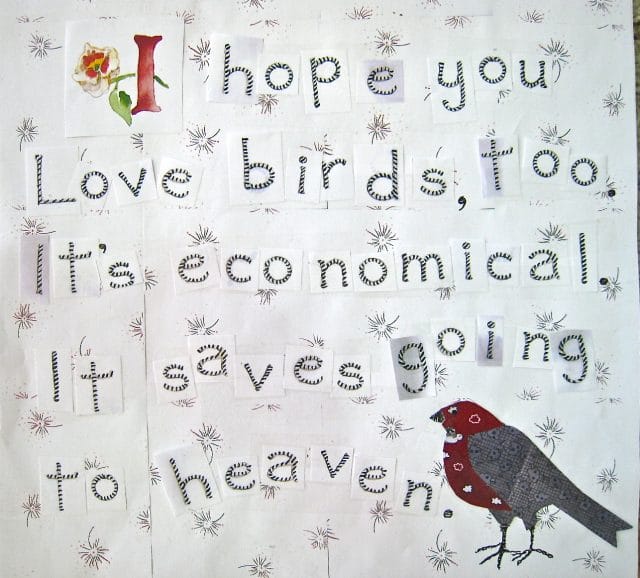 I hope you
Love birds, too.
It's economical.
It saves going
to heaven.